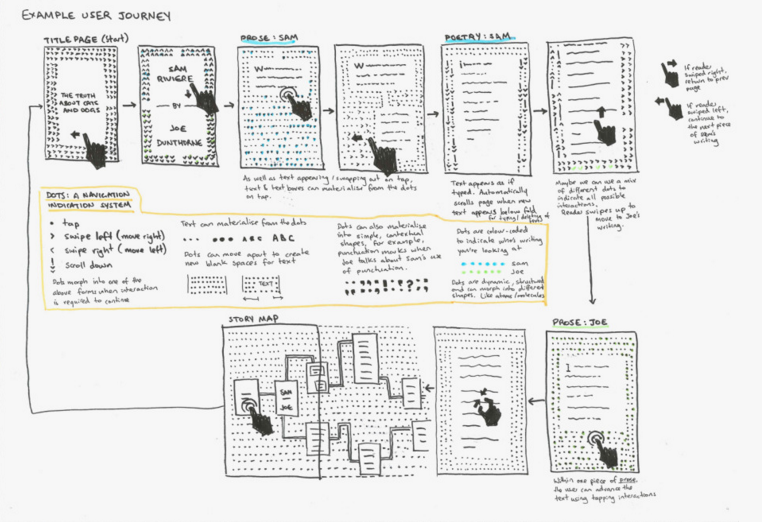 EXAMPLE USER JOURNEY
TITLE PAGE (Start)
THE TRUTH
ABOUT CATS
AND DOGS
SAM
RIVIERE
BY
JOE
DUNTHORNE
PROSE: SAM
W
As well as text appearing/swapping out on tap,
text & text boxes can materialise from the dots
on tap.
W
POETRY: SAM
Text appears as if
typed. Automatically
scrolls page when new
text appears below fold
for typing/deleting of
text
Maybe we can use a mix
of different dots to
indicate all possible
interactions.
Reader swipes up to
move to Joe's
writing.
If reader
swiped right,
return to prev
page
If reader
swiped left,
continue to
the next piece
of Sam's
writing
DOTS: A NAVIGATION
INDICATION SYSTEM
• tap
> swipe left (move right)
< swipe right (move left)
scroll down
Dots morph into one of the
above forms when interaction
is required to continue
Text can materialise from the dots
ABC ABC
Dots can move apart to create
new blank spaces for text
TEXT
Dots can also materialise
into simple, contextual
shapes, for example,
punctuation marks when
Joe talks about Sam's use
of punctuation.
Dots are colour-coded
to indicate who's writing
you're looking at
Sam
Joe
Dots are dynamic, structured
and can morph into different
shapes. Like atoms/molecules
STORY MAP
SAM
JOE
PROSE: JOE
I
Within one piece of prose
the user can advance the
text using tapping interactions